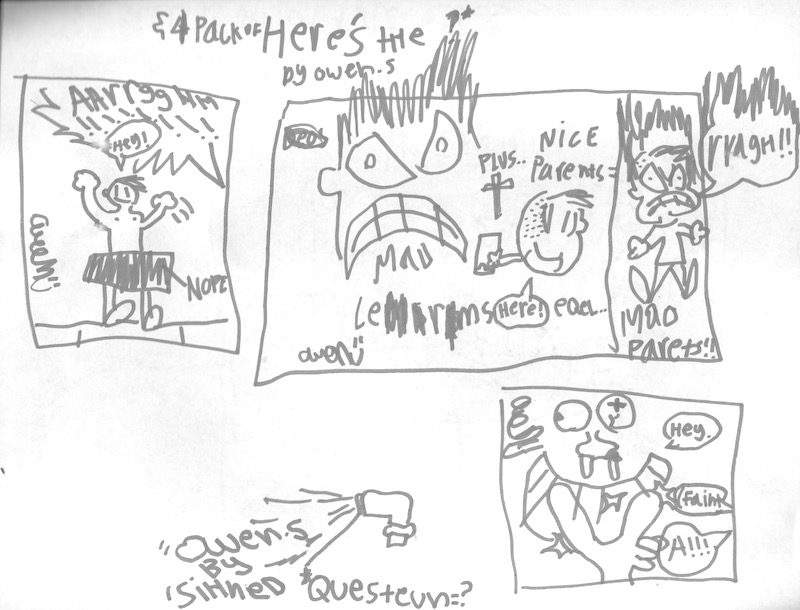 & 4 Pack OF HERE'S tHE
by owen.s
AArrggHH
!!!!!!!
Hey!
owen
NOPE
MAD
PLUS..
NiCE
Parents=
Here!
each...
owen
rragH!!
MAD
Parets!!
Hey.
Faint
PA!!!
"Owen.s
BY
'SiHNED
*QUesteun=?